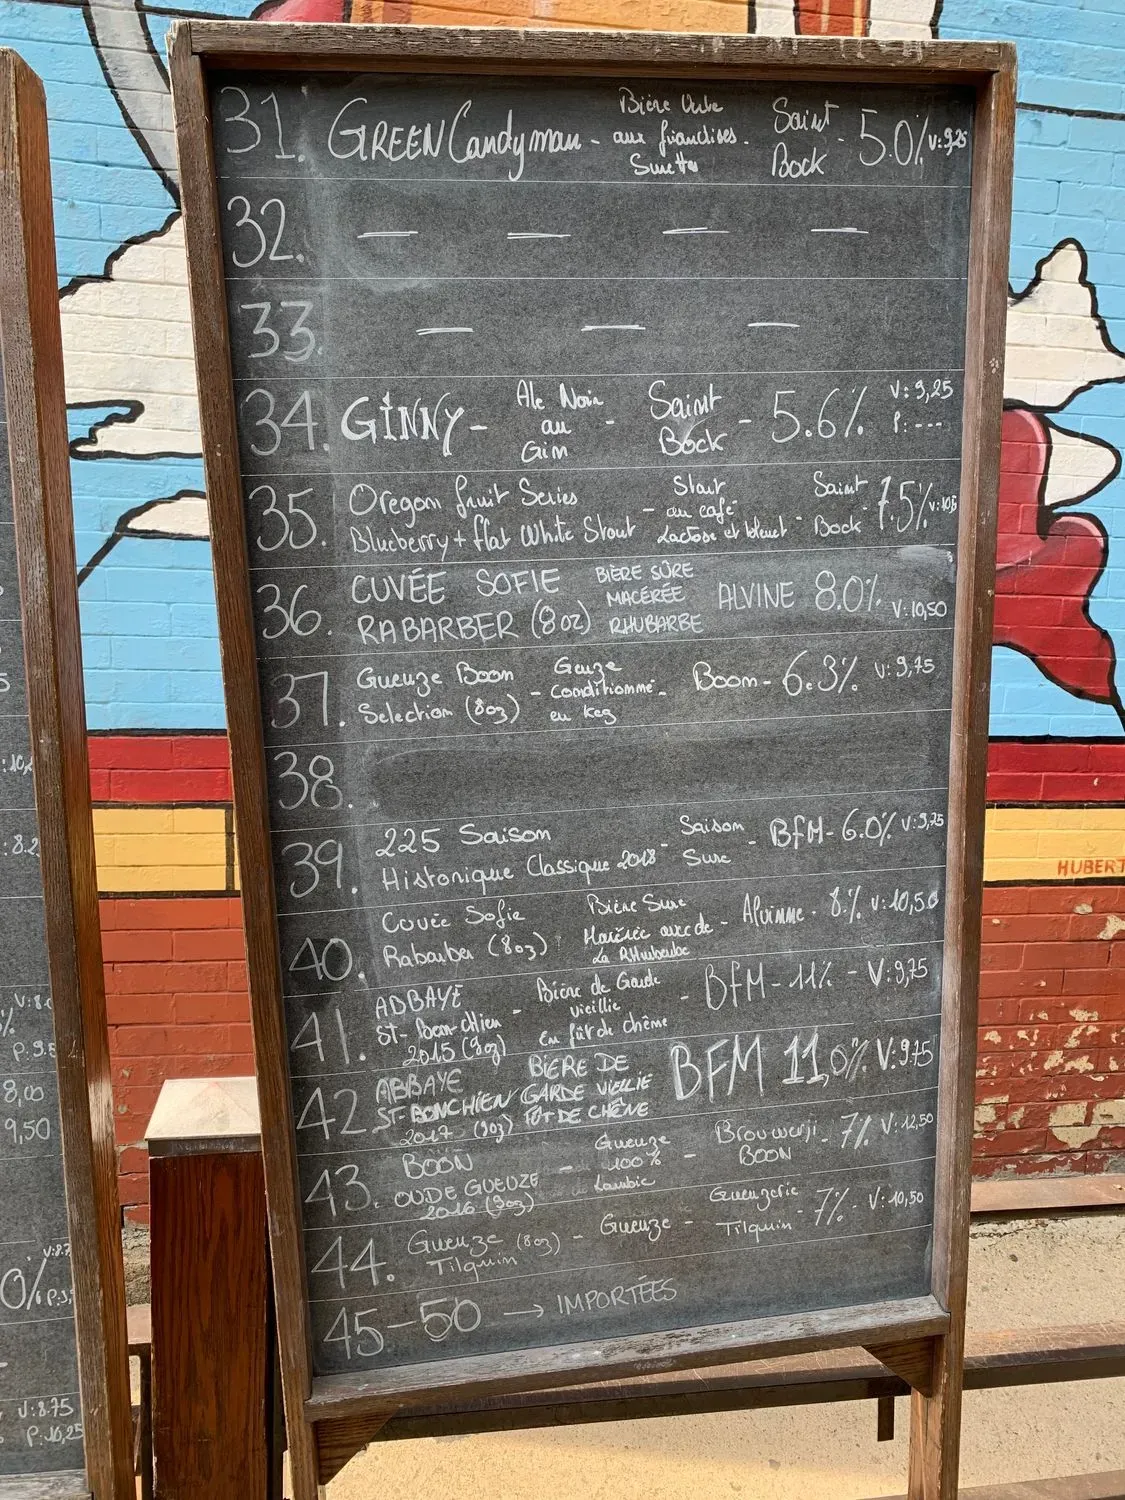 31. GREEN Candyman - Bière Verte aux friandises Surettes - Saint Bock - 5.0% V: 9,25
32. — — — —
33. — — —
34. GINNY - Ale Noire au Gin - Saint Bock - 5.6% V: 9,25 P: ---
35. Oregon fruit Series
Blueberry + flat White Stout - Stout au café Lactose et bleuet - Saint Bock - 7.5% V: 10,5
36. CUVÉE SOFIE
RABARBER (8oz) BIÈRE SÛRE MACÉRÉE RHUBARBE ALVINE 8.0% V: 10,50
37. Gueuze Boon
Selection (8oz) - Geuze conditionné en keg - Boon - 6.3% V: 9,75
38.
39. 225 Saison
Historique Classique 2018 - Saison Sure - BFM - 6.0% V: 9,25
40. Cuvée Sofie
Rabarber (8oz) Bière Sure Macérée avec de La Rhubarbe - Alvinne - 8% V: 10,50
41. ABBAYE
St-Bon-Chien
2015 (9oz) - Bière de Garde vieillie en fût de chêne - BFM - 11% - V: 9,75
42 ABBAYE
ST-BONCHIEN
2017 (9oz) BIÈRE DE GARDE VIELLIE FÛT DE CHÊNE BFM 11,0% V: 9,75
43. BOON
OUDE GUEUZE
2016 (9oz) - Gueuze 100% Lambic - Brouwerji BOON - 7% V: 12,50
44. Gueuze (8oz)
Tilquin - Gueuze - Gueuzerie Tilquin - 7% - V: 10,50
45-50 → IMPORTÉES
HUBERT
8,00
9,50
V: 8.75
P: 10,25